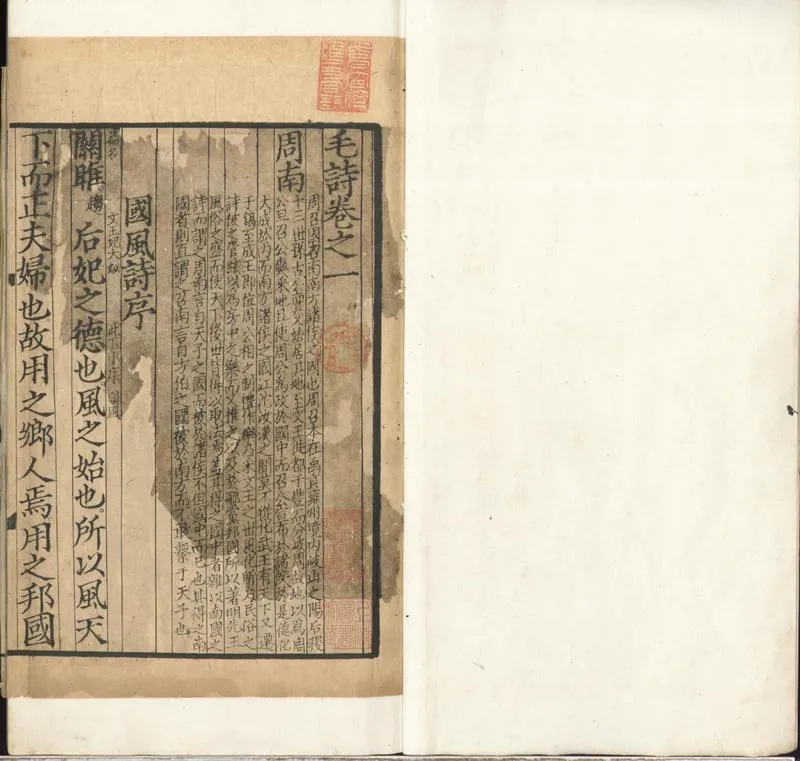 毛詩卷之一
周南
周召國名南南方諸侯之國也周召本在禹貢雍州境内岐山之陽后稷
十三世孫古公亶父始居其地至文王徙都于豐而分岐周故地以爲周
公旦召公奭采地且使周公爲政於國中而召公宣布於諸侯於是德化
大成於内而南方諸侯之國江沱汝漢之間莫不從化武王有天下又遷
于鎬王成王即位周公相之制禮作樂乃采文王之世風化所及民俗之
詩被之管絃以爲房中之樂而又推之以及於鄉黨邦國所以著明先王
風俗之盛而使天下後世皆得以取法焉蓋其得之國中者雜以南國之
詩而謂之周南言自天子之國而被於諸侯不但國中而已也其得之南
國者則直謂之召南言自方伯之國被於南方而不敢繫于天子也
國風詩序
篇名 文王妃大姒 此下小序
關雎 后妃之德也風之始也所以風天
下而正夫婦也故用之鄉人焉用之邦國